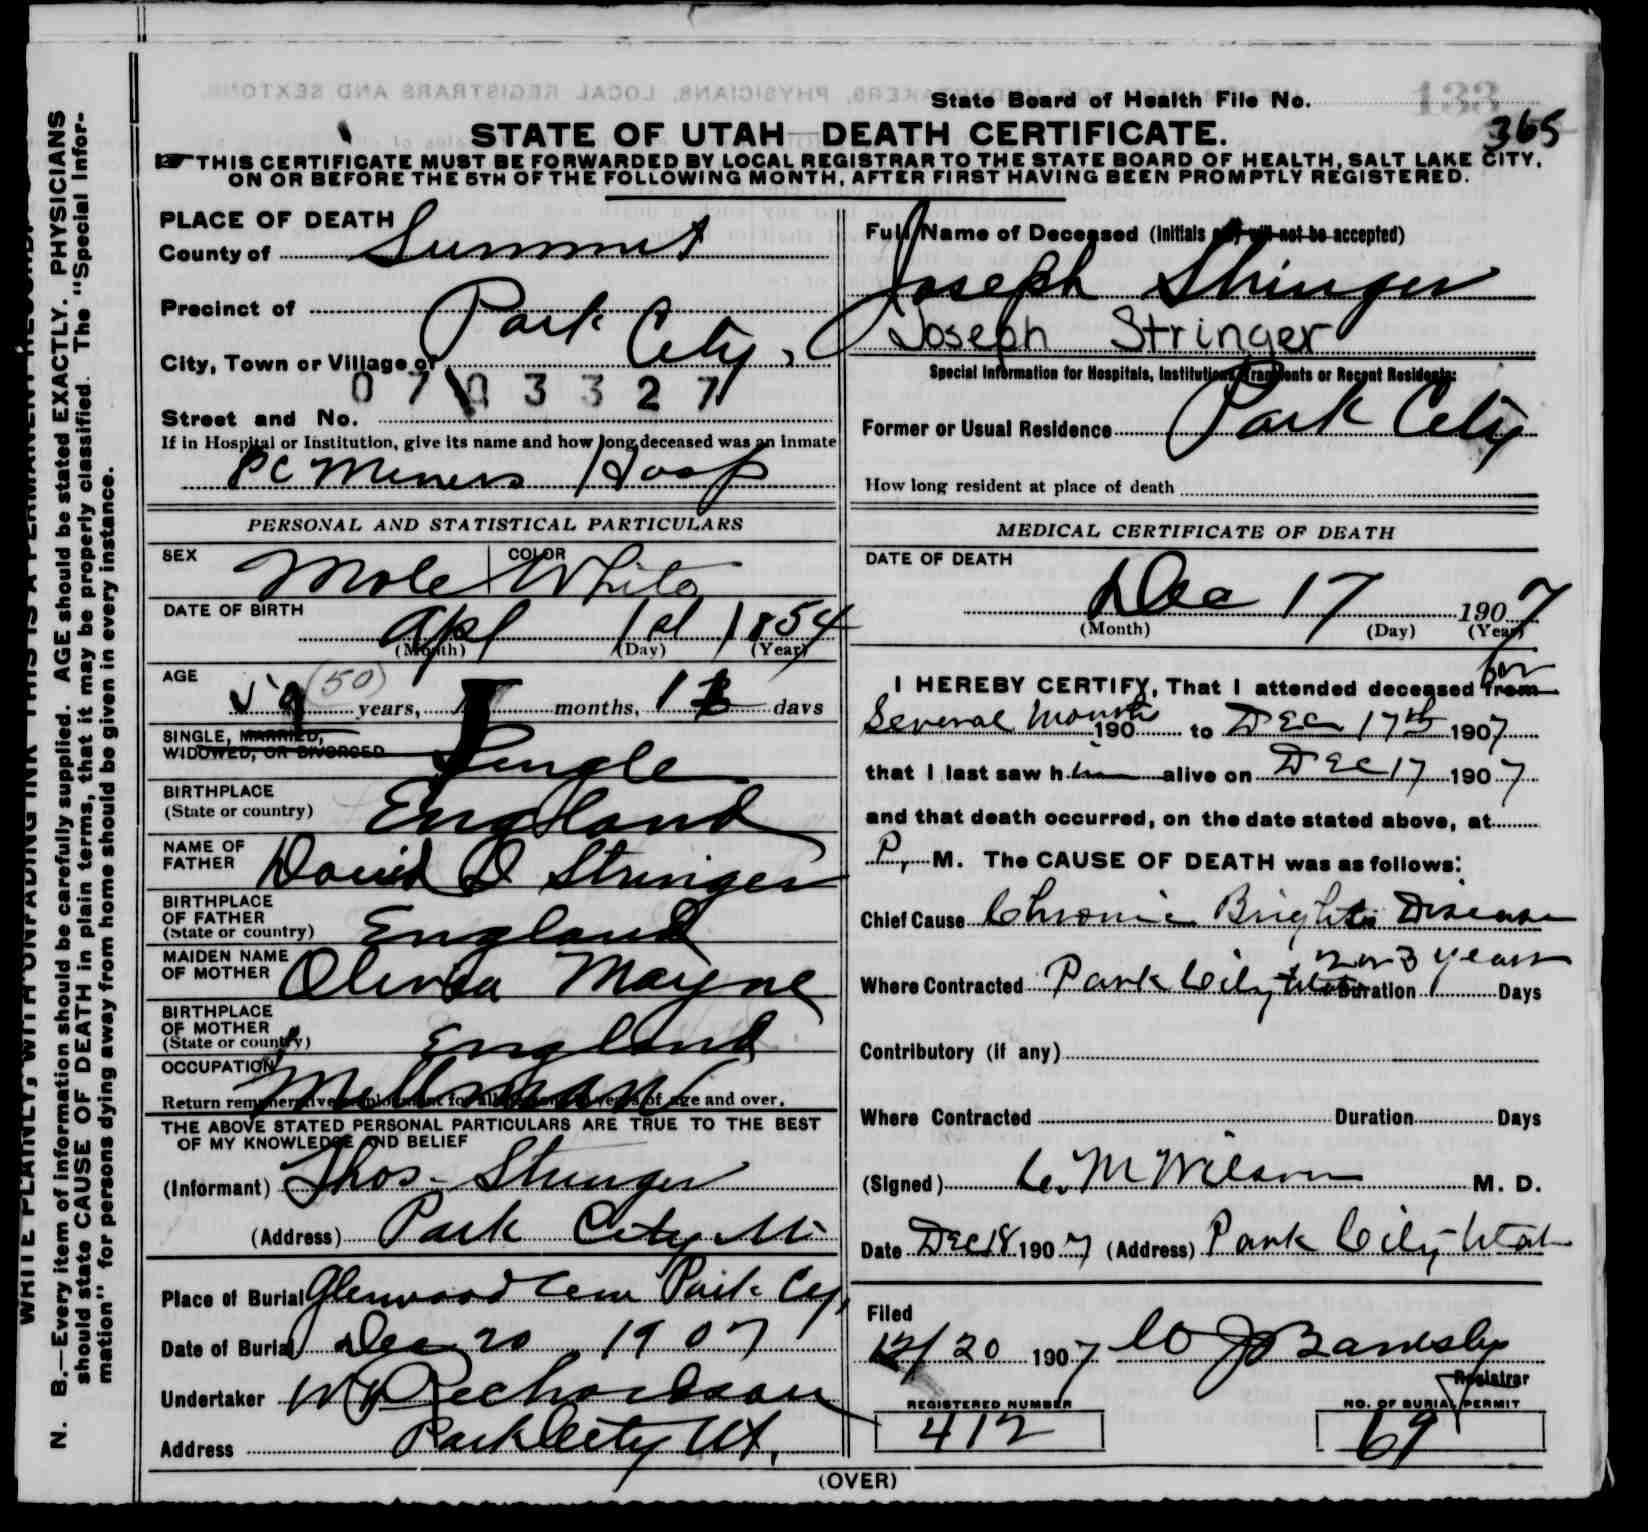 State Board of Health File No.
133
365
STATE OF UTAH—DEATH CERTIFICATE.
THIS CERTIFICATE MUST BE FORWARDED BY LOCAL REGISTRAR TO THE STATE BOARD OF HEALTH, SALT LAKE CITY,
ON OR BEFORE THE 5TH OF THE FOLLOWING MONTH, AFTER FIRST HAVING BEEN PROMPTLY REGISTERED.
PLACE OF DEATH
County of Summit
Precinct of
Park City,
City, Town or Village of
0703327
Street and No.
If in Hospital or Institution, give its name and how long deceased was an inmate
PC Miners Hosp
Full Name of Deceased (Initials only will not be accepted)
Joseph Stringer
Joseph Stringer
Special Information for Hospitals, Institutions, Transients or Recent Residents:
Former or Usual Residence Park City
How long resident at place of death
PERSONAL AND STATISTICAL PARTICULARS
SEX Male COLOR White
DATE OF BIRTH
Apl 1st 1854
(Month) (Day) (Year)
AGE
(50) years, months, days
SINGLE, MARRIED,
WIDOWED, OR DIVORCED Single
BIRTHPLACE
(State or country) England
NAME OF
FATHER David D Stringer
BIRTHPLACE
OF FATHER
(State or country) England
MAIDEN NAME
OF MOTHER Olivia Mayne
BIRTHPLACE
OF MOTHER
(State or country) England
OCCUPATION
Millman
Return remunerative employment for all persons years of age and over.
THE ABOVE STATED PERSONAL PARTICULARS ARE TRUE TO THE BEST
OF MY KNOWLEDGE AND BELIEF
(Informant) Thos. Stringer
(Address) Park City Ut
Place of Burial Glenwood Cem Park Cy,
Date of Burial Dec 20 1907
Undertaker Richardson
Address Park City Ut,
MEDICAL CERTIFICATE OF DEATH
DATE OF DEATH
Dec 17 1907
(Month) (Day) (Year)
I HEREBY CERTIFY, That I attended deceased from for
Several Months 190 to Dec 17th 1907
that I last saw him alive on Dec 17 1907
and that death occurred, on the date stated above, at
P. M. The CAUSE OF DEATH was as follows:
Chief Cause Chronic Brights Disease
2 or 3 years
Where Contracted Park City Utah Duration Days
Contributory (if any)
Where Contracted Duration Days
(Signed) C. M Wilson M. D.
Date Dec 18 1907 (Address) Park City Utah
Filed
12/20 1907
Registrar
REGISTERED NUMBER
412
NO. OF BURIAL PERMIT
69
(OVER)
N. B.—Every item of information should be carefully supplied. AGE should be stated EXACTLY. PHYSICIANS
should state CAUSE OF DEATH in plain terms, that it may be properly classified. The "Special Infor-
mation" for persons dying away from home should be given in every instance.
WRITE PLAINLY, WITH UNFADING INK THIS IS A PERMANENT RECORD.